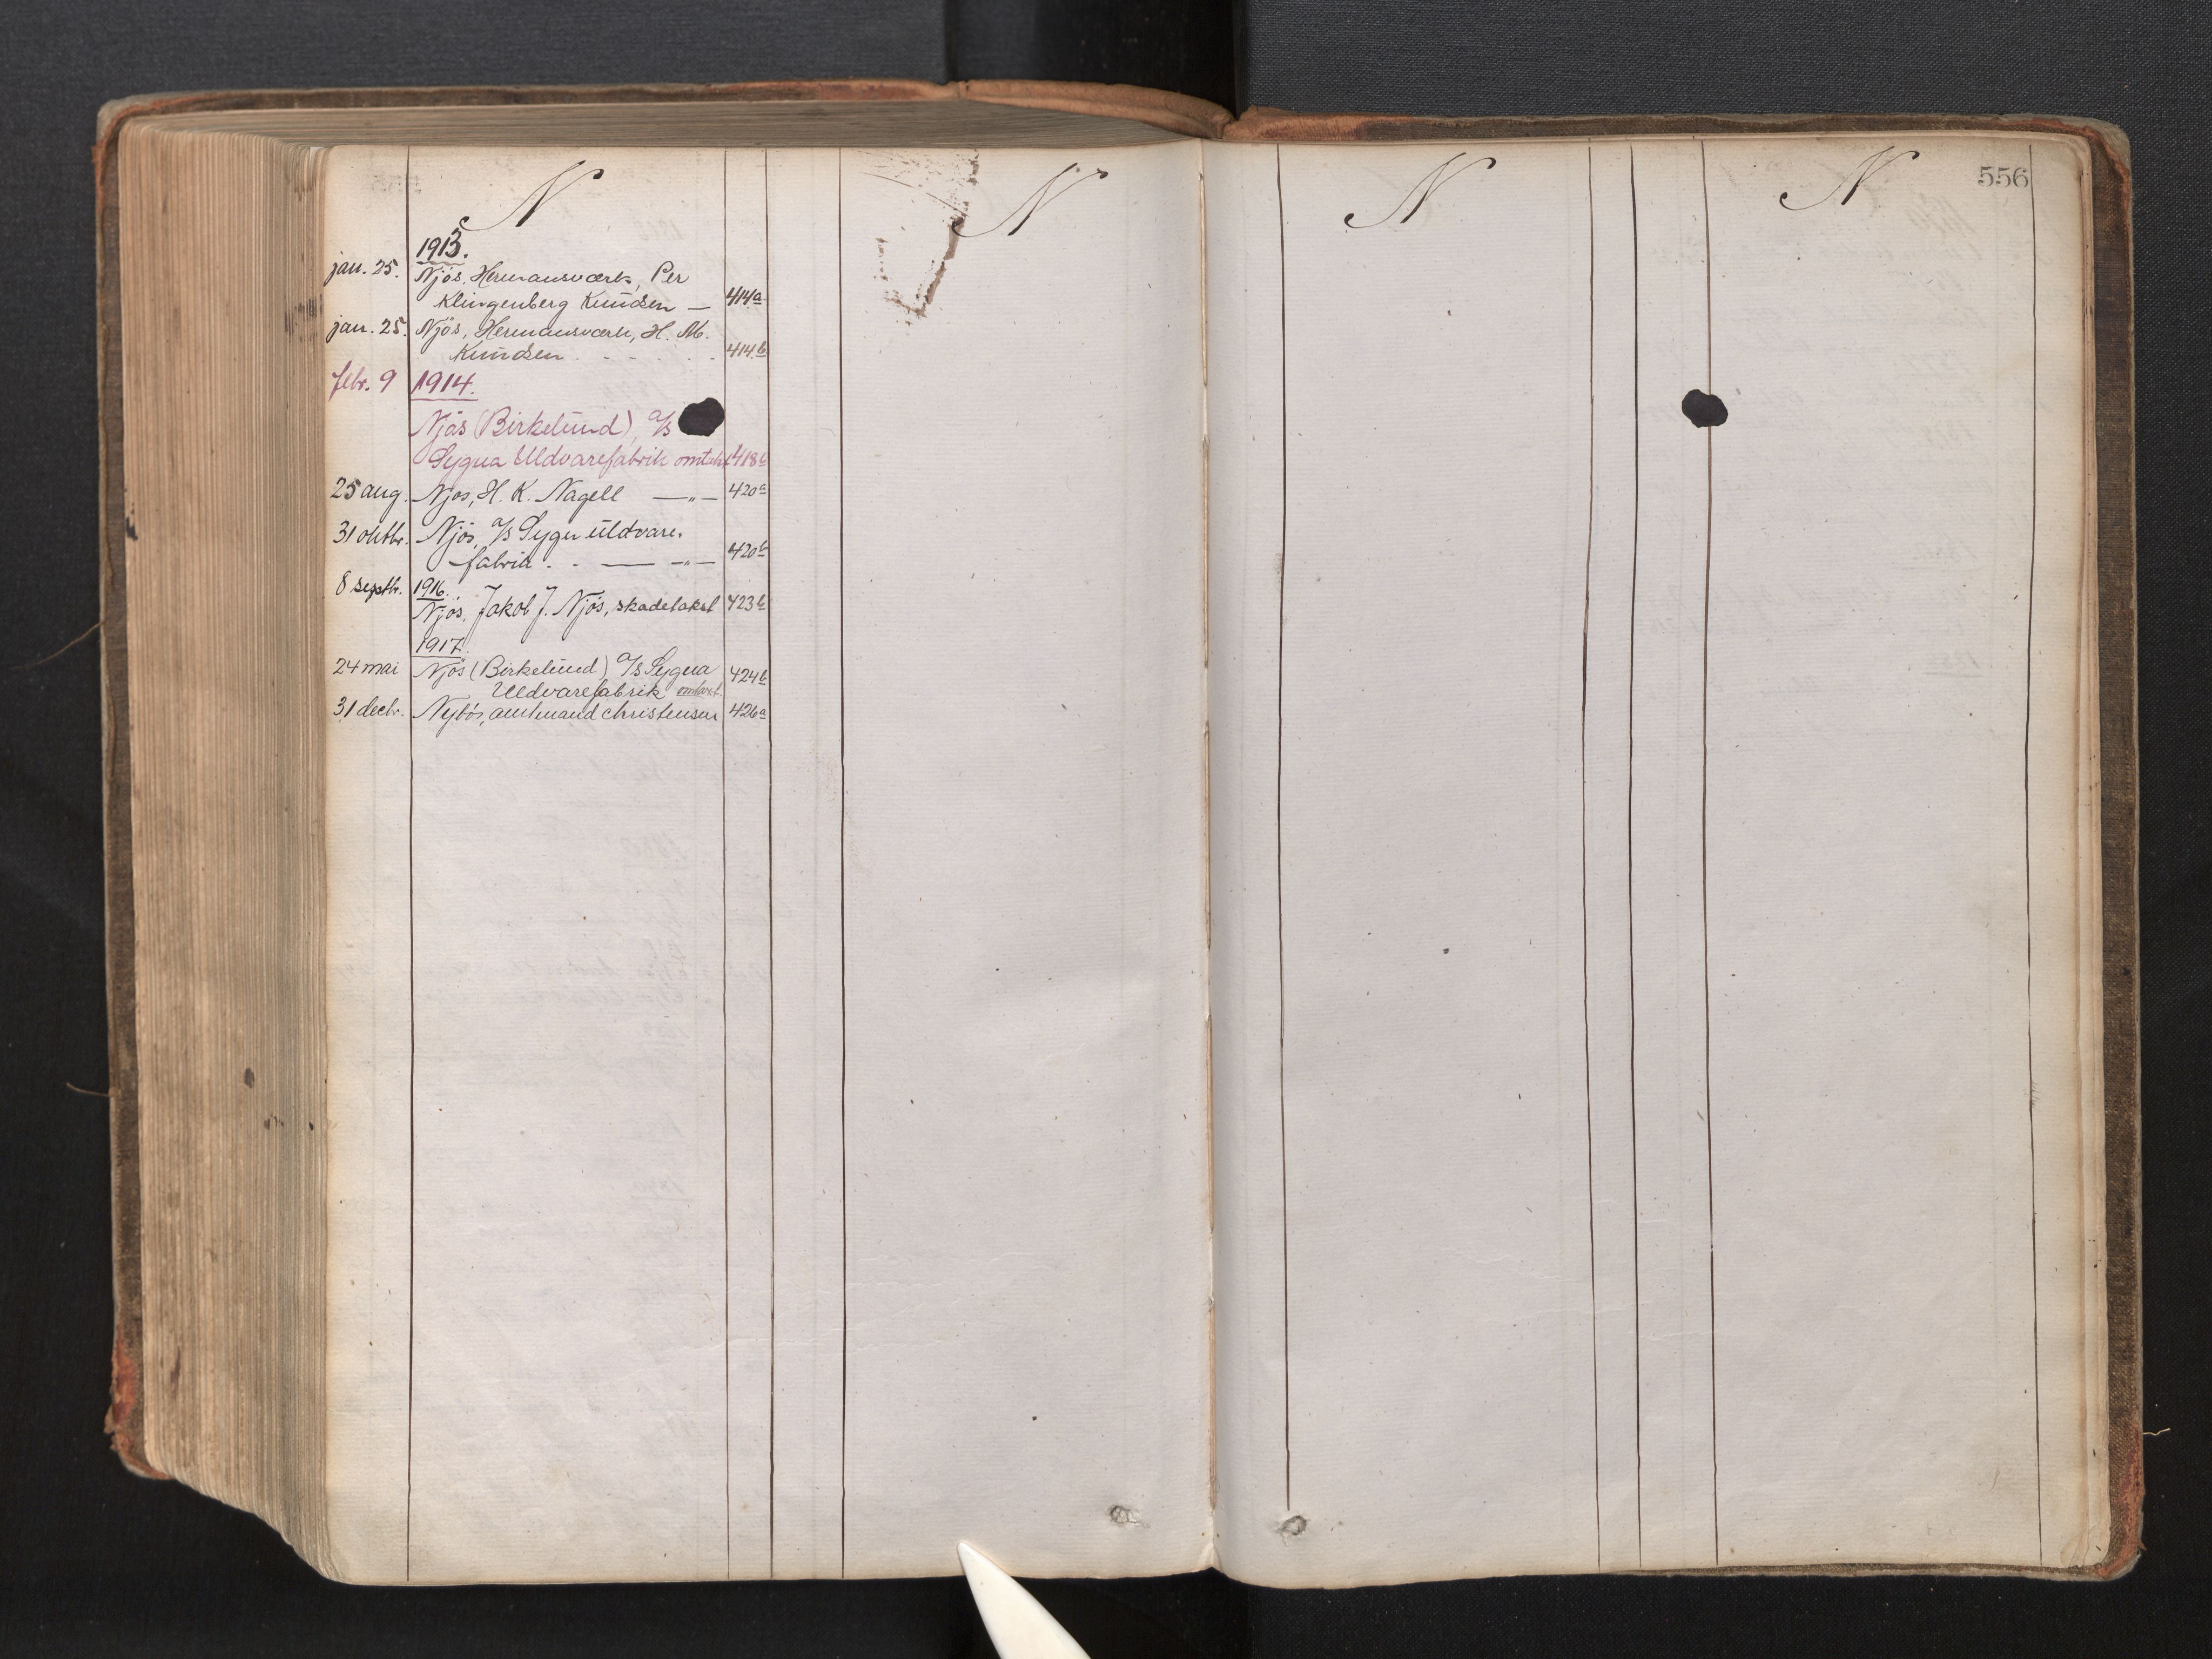 N N N N 556
1913.
jan. 25. Njøs, Hermansværk, Per
Klingenberg Knudsen — 414a
jan. 25. Njøs, Hermansværk, H. M.
Knudsen . . . . . 414b
febr. 9 1914.
Njøs (Birkelund), a/s
Sygna Uldvarefabrik omtakst 418b
25 aug. Njøs, H. K. Nagell —„— 420a
31 oktbr. Njøs, a/s Sygna uldvare-
fabrik . . — —„— 420b
8 septbr. 1916.
Njøs, Jakob J. Njøs, skadetakst 423b
1917.
24 mai Njøs (Birkelund) a/s Sygna
Uldvarefabrik omtaxt. 424b
31 decbr. Nybø, amtmand Christensen 426a